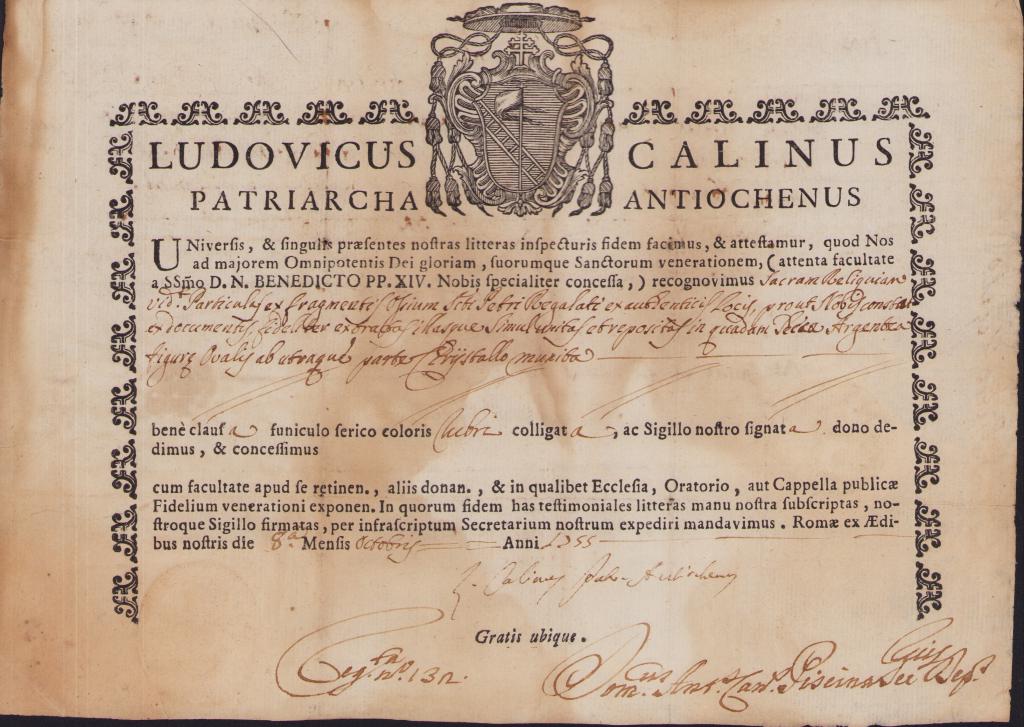 LUDOVICUS CALINUS
PATRIARCHA ANTIOCHENUS
UNiversis, & singulis præsentes nostras litteras inspecturis fidem facimus, & attestamur, quod Nos
ad majorem Omnipotentis Dei gloriam, suorumque Sanctorum venerationem, (attenta facultate
a SSm̃o D. N. BENEDICTO PP. XIV. Nobis specialiter concessa,) recognovimus Sacram Reliquiam
vid.t Particulas ex fragmentis Ossium Sti Petri Regalati ex authenticis Locis, prout Nobis constat
ex documentis, fideliter extractas illasque simul unitas et repositas in quadam Theca Argentea
figurę Ovalis ab utraque parte Chrystallo munita
benè clausa funiculo serico coloris Rubri colligata, ac Sigillo nostro signata dono de-
dimus, & concessimus
cum facultate apud se retinen., aliis donan., & in qualibet Ecclesia, Oratorio, aut Cappella publicæ
Fidelium venerationi exponen. In quorum fidem has testimoniales litteras manu nostra subscriptas, no-
stroque Sigillo firmatas, per infrascriptum Secretarium nostrum expediri mandavimus. Romæ ex Ædi-
bus nostris die 8.a Mensis Octobris Anni 1755
L. Calinus Patr. Antiochenus
Gratis ubique.
Reg.ta n.o 132.
Dom.cus Ant.s Can.s Piscina Sec